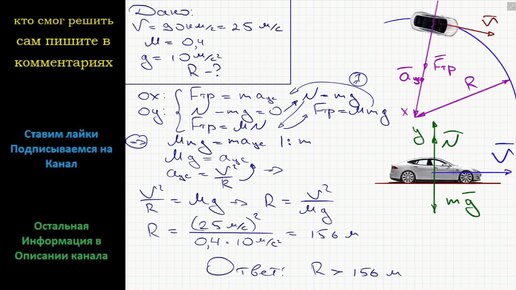 кто смог решить
сам пишите в
комментариях
Ставим лайки
Подписываемся на
Канал
Остальная
Информация в
Описании канала
Дано:
V = 90 км/ч = 25 м/с
μ = 0,4
g = 10 м/с²
R - ?
ox: { Fтр = maцс
oy: { N - mg = 0
{ Fтр = μN
N = mg
Fтр = μmg
①
=> μmg = maцс | : m
μg = aцс
aцс = V²/R
V²/R = μg => R = V²/μg
R = (25 м/с)²/0,4·10 м/с² = 156 м
Ответ: R > 156 м
V
Fтр
aцс
R
x
y
N
V
mg